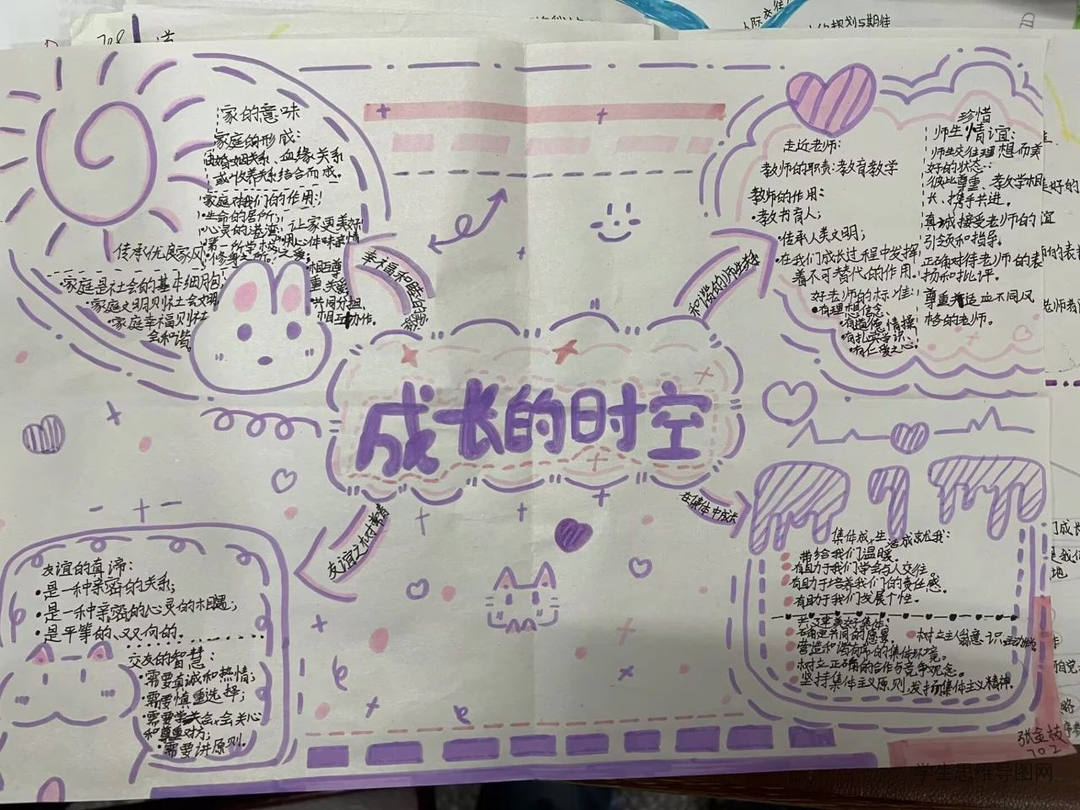 成长的时空
家的意味
家庭的形成:
由婚姻关系、血缘关系
或收养关系结合而成。
家庭对我们的作用:
·生命的居所;
·心灵的港湾;
让家更美好
用心体味亲情
传承优良家风
·家庭是社会的基本细胞;
·家庭文明则社会文明
·家庭幸福则社
会和谐
共同分担
相互协作。
走近老师:
教师的职责:教育教学
教师的作用:
·教书育人;
·传承人类文明;
·在我们成长过程中发挥
着不可替代的作用.
好老师的标准:
·有理想信念;
·有道德情操
·有扎实学识;
·有仁爱之心;
珍惜
师生情谊:
师生交往理想而美
好的状态:
彼此尊重、教学相
长、携手共进。
真诚接受老师的
引领和指导。
正确对待老师的表
扬和批评。
尊重并适应不同风
格的老师。
和谐的师生关系
友谊之树常青
在集体中成长
友谊的真谛:
·是一种亲密的关系;
·是一种亲密的心灵的相遇;
·是平等的、双向的.
交友的智慧:
·需要真诚和热情;
·需要慎重选择;
·需要学会会关心
和尊重对方;
·需要讲原则.
集体生活成就我:
带给我们温暖.
有助于我们学会与人交往
有助于培养我们的责任感.
有助于我们发展个性.
共建美好集体:
营造和谐向上的集体环境.
树立正确的合作与竞争观念.
坚持集体主义原则,发扬集体主义精神.
702
学生思维导图网
708